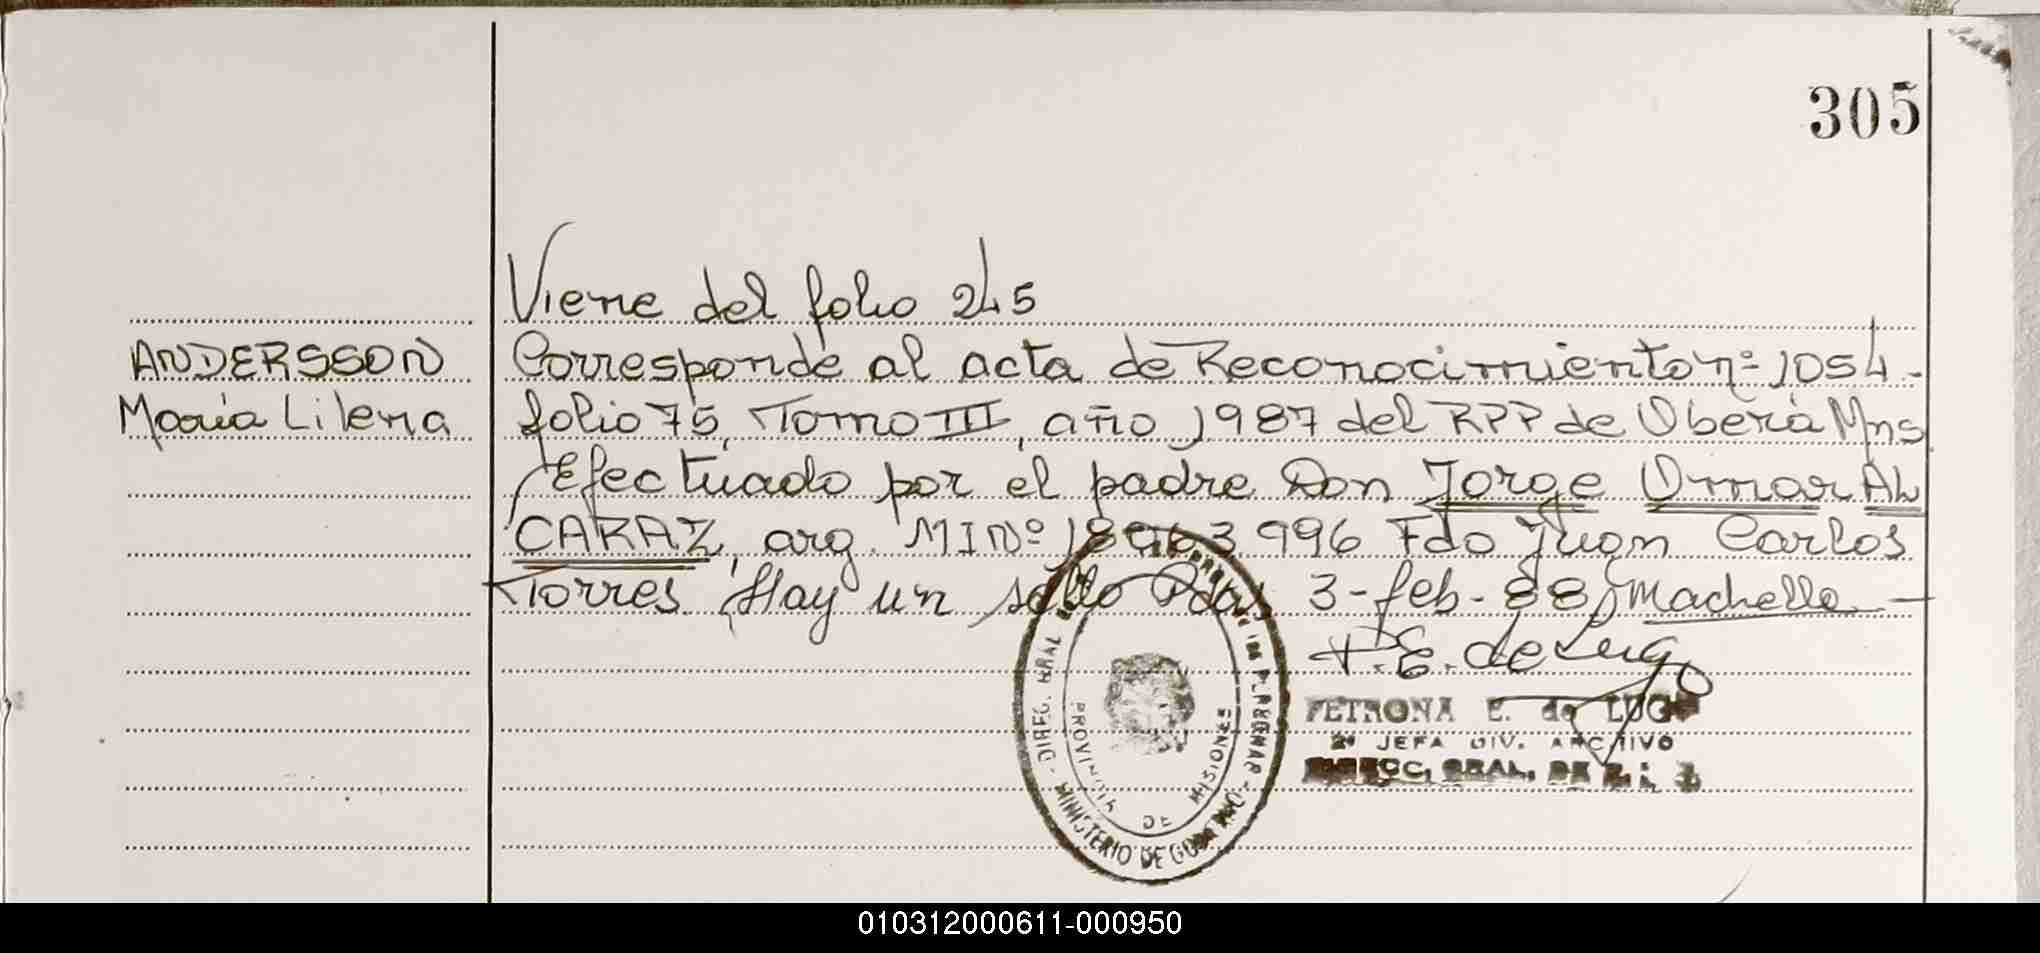 305
Viene del folio 245
ANDERSSON
María Lilena
Corresponde al acta de Reconocimiento nº 1054-
folio 75, Tomo III, año 1987 del RPP de Oberá Mns
Efectuado por el padre Don Jorge Omar AL
CARAZ, arg. MI Nº 18963996 Fdo Juan Carlos
Torres. Hay un sello Pdas 3-feb-88
P.E. de Lugo
PETRONA E. de LUGO
2ª JEFA DIV. ARCHIVO
DIRECC. GRAL. DE
DIREC. GRAL
PROVINCIA DE MISIONES
MINISTERIO DE GOBIERNO
010312000611-000950